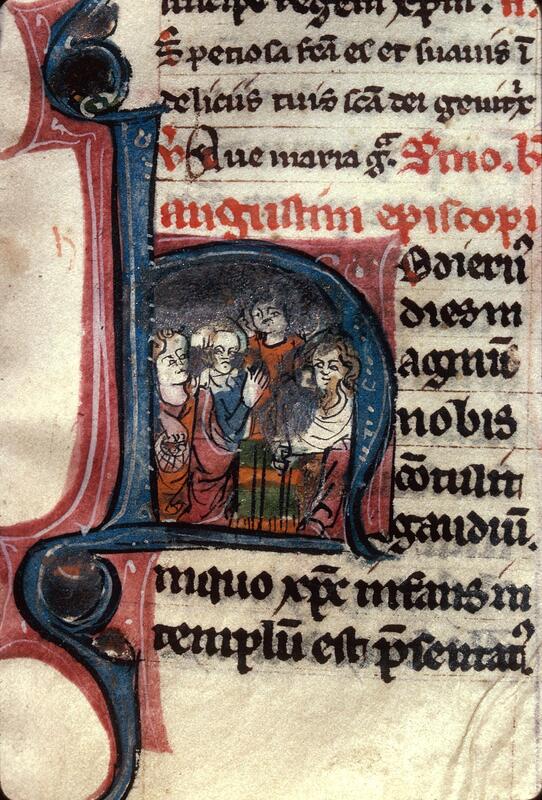 rincipe regem xp̄m. R.
Speciosa facta es et suauis ī
deliciis tuis sc̄a dei genitx
V Aue maria gᵃ. Smo. b
augustini episcopi
h
Odiernꝰ
dies m
agnū
nobis
cōtulit
gaudiū.
in quo xp̄c infans in
templū est p̄sentatꝰ.